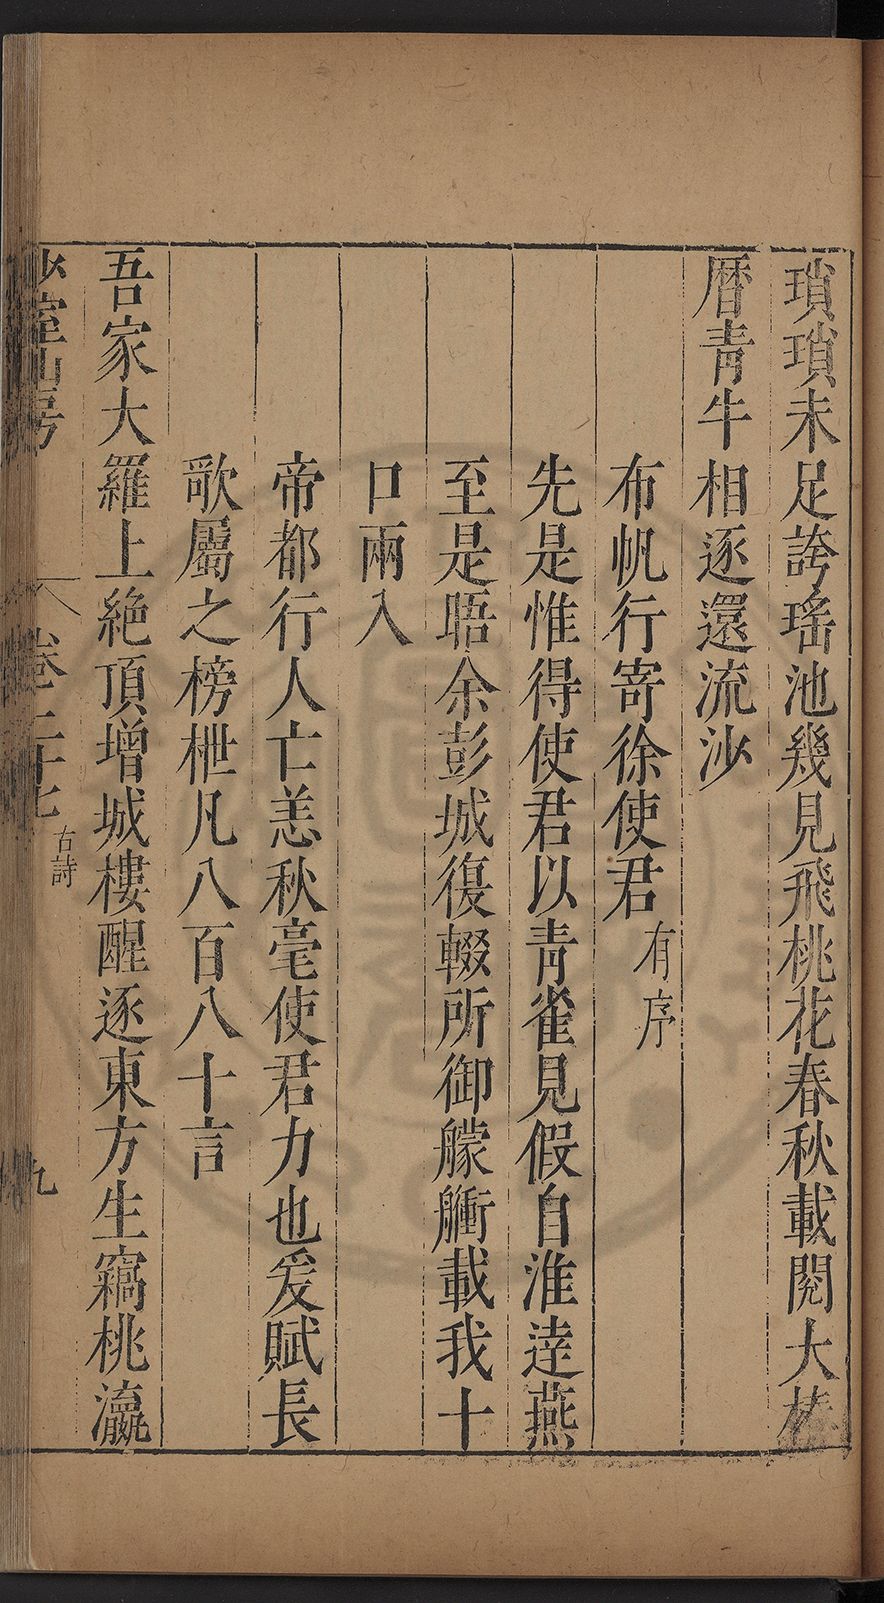 瑣瑣未足誇瑤池幾見飛桃花春秋載閱大椿
曆青牛相逐還流沙
布帆行寄徐使君有序
先是惟得使君以青雀見假自淮逹燕
至是晤余彭城復輟所御艨艟載我十
口兩入
帝都行人亡恙秋毫使君力也爰賦長
歌屬之榜枻凡八百八十言
吾家大羅上絶頂增城樓醒逐東方生竊桃瀛
少室山房 卷二十七 古詩 九